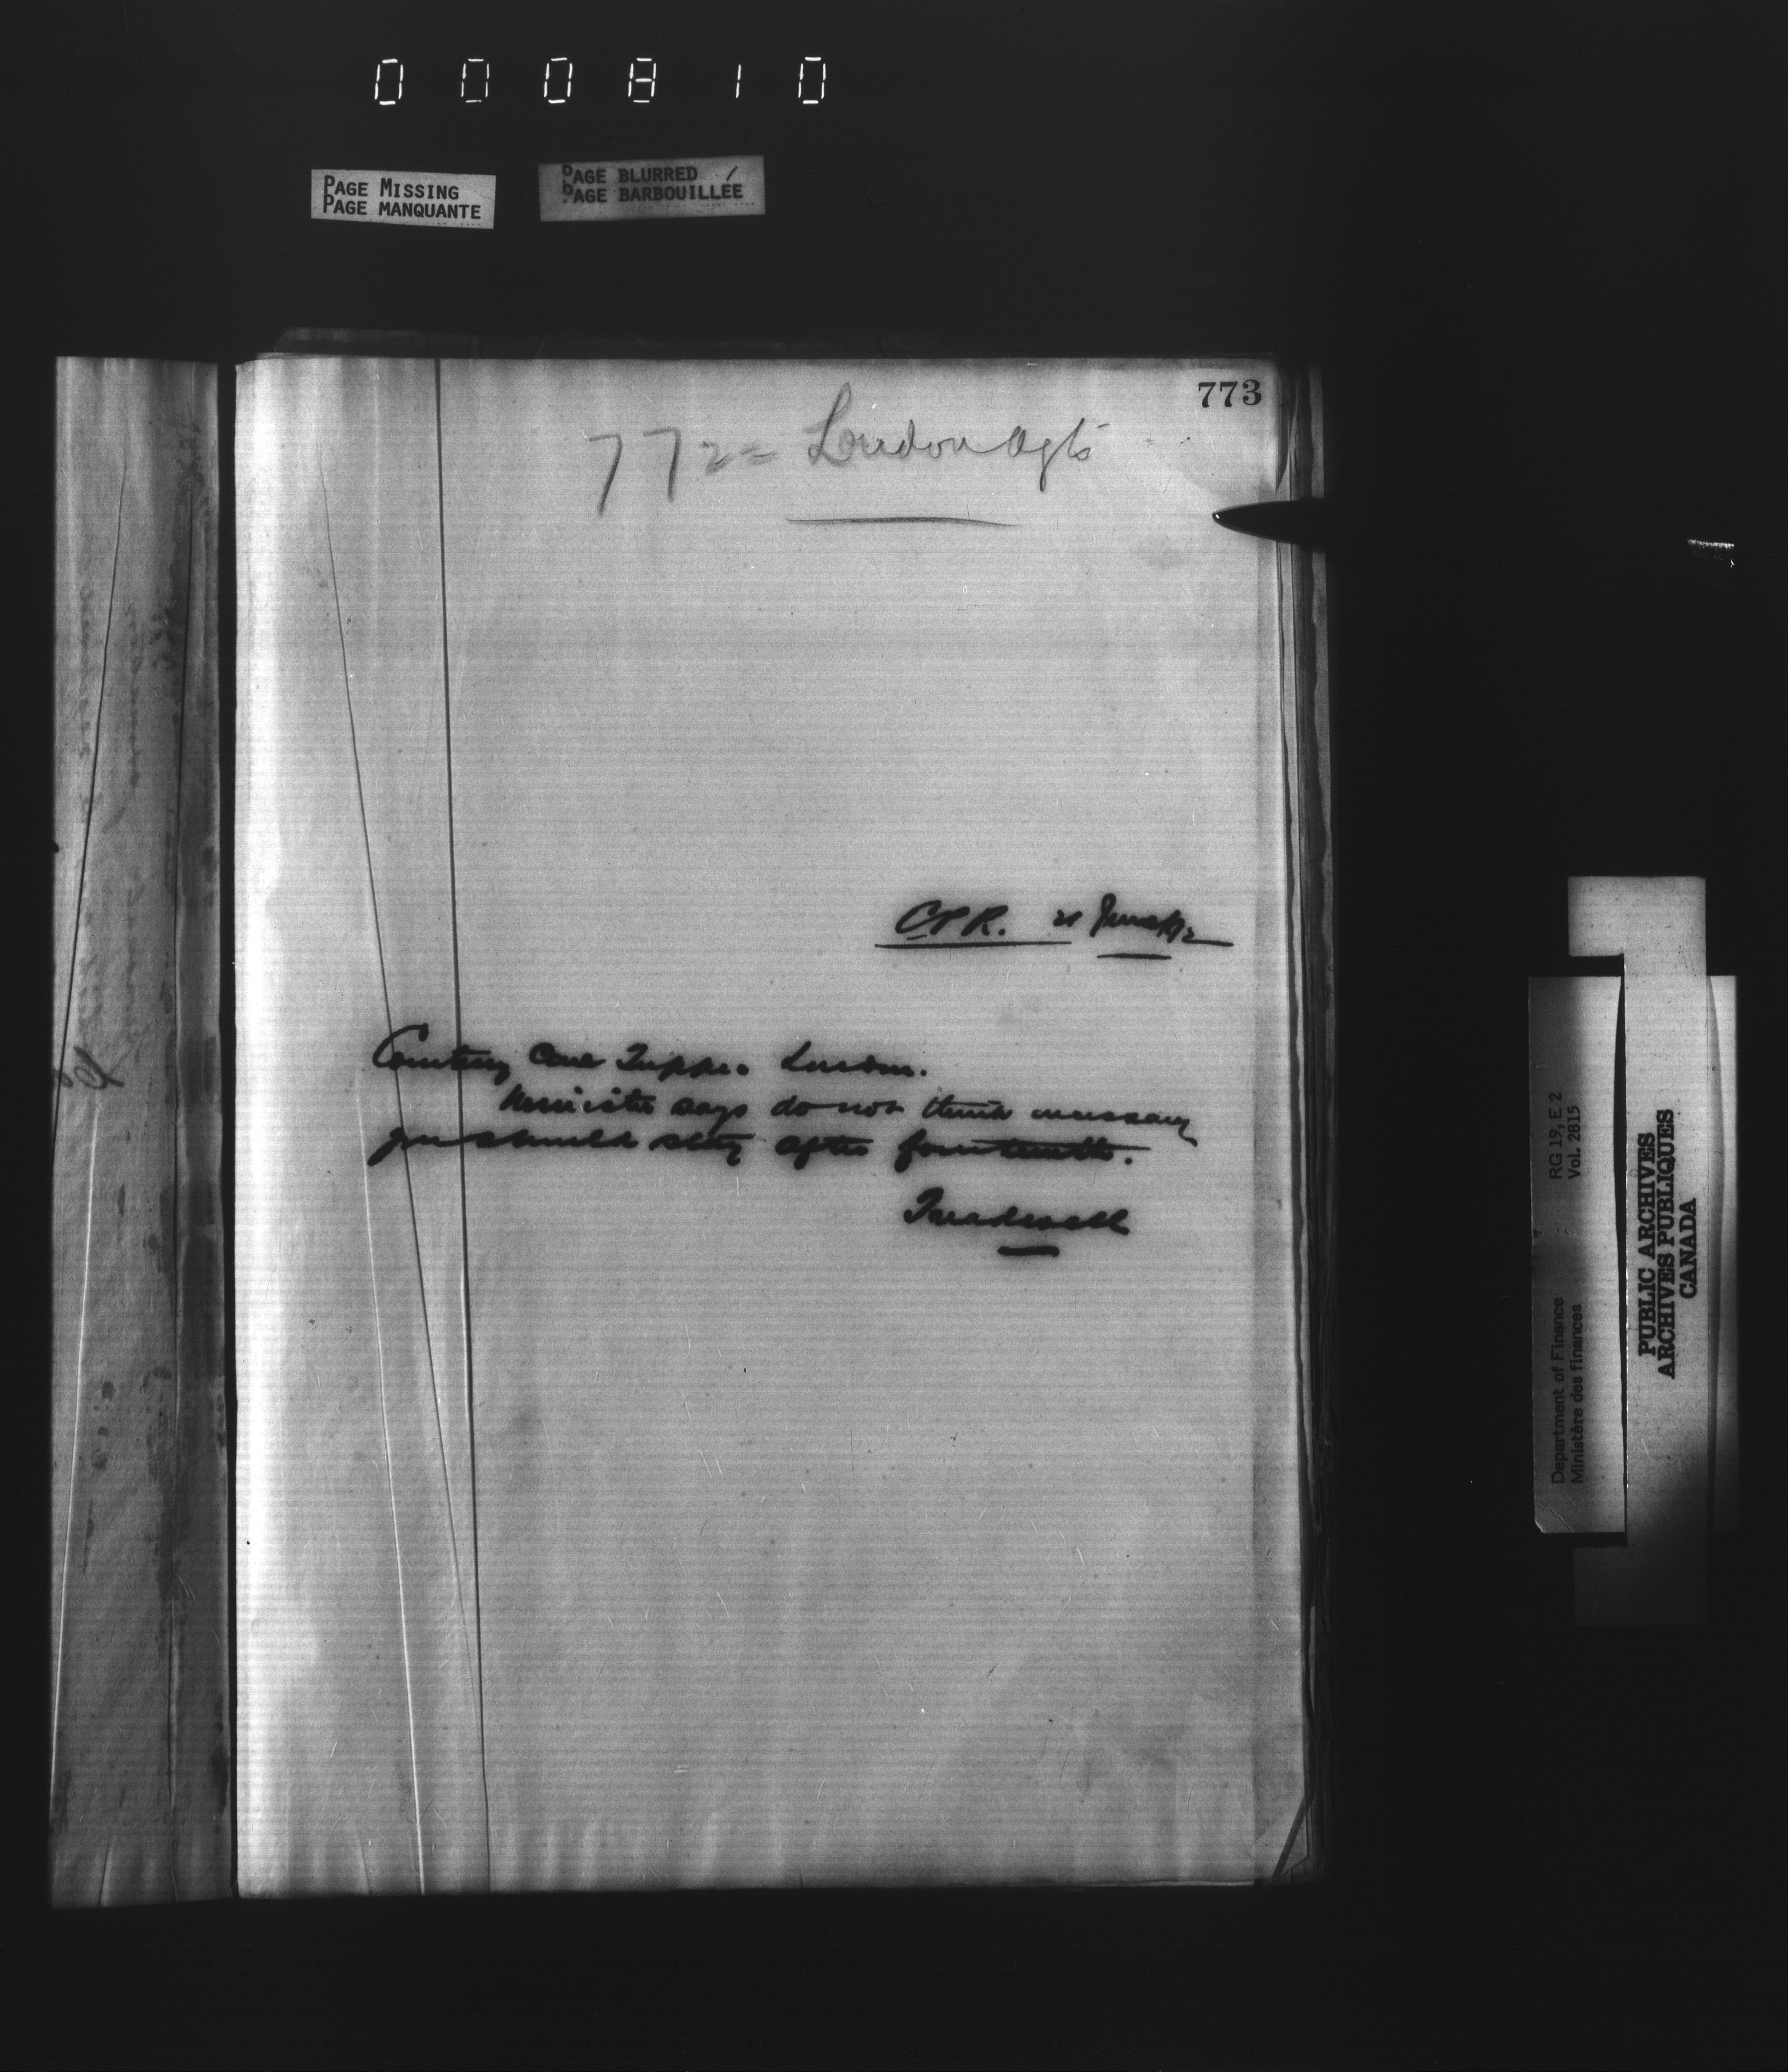 000810
PAGE MISSING
PAGE MANQUANTE
PAGE BLURRED
PAGE BARBOUILLÉE
773
772 = London Agts
C.P.R. 21 June/92
Courtney Care Tupper London.
Minister says do not think necessary
you should stay after fourteenth.
Department of Finance RG 19, E 2
Ministère des finances Vol. 2815
PUBLIC ARCHIVES
ARCHIVES PUBLIQUES
CANADA